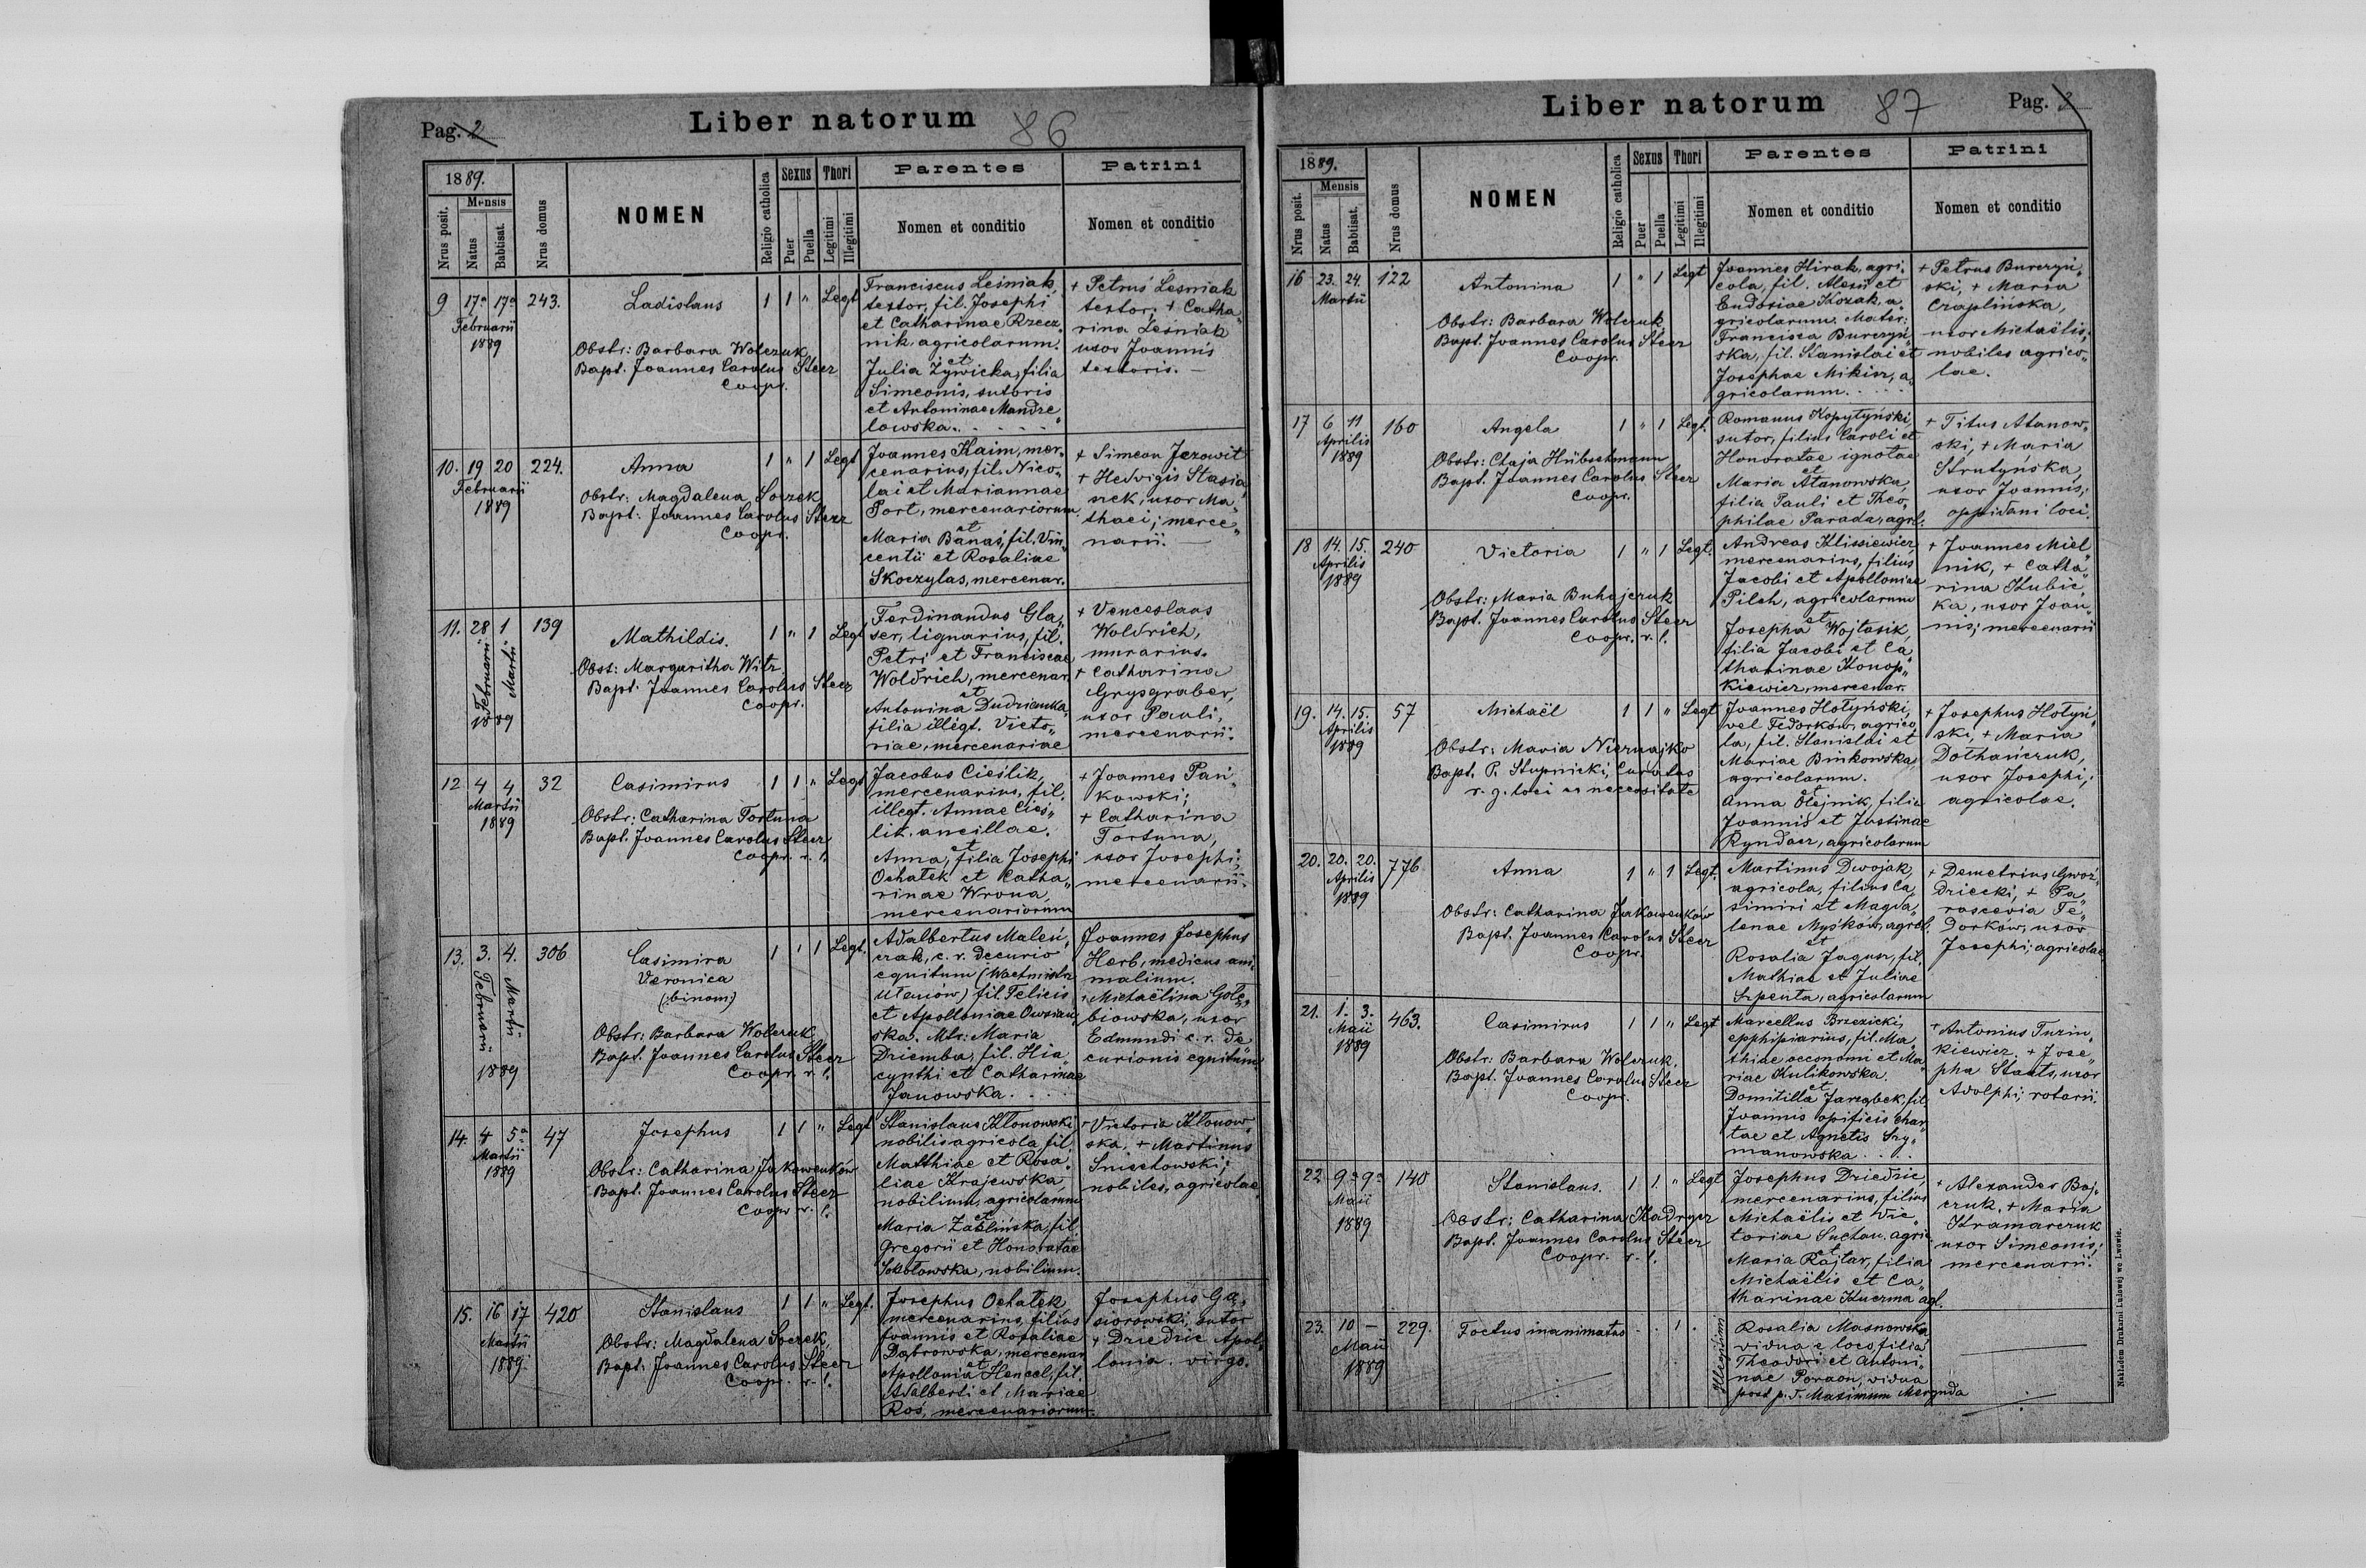 Pag. 2
Liber natorum
86
1889.
Mensis
Nrus posit.
Natus
Babtisat.
Nrus domus
NOMEN
Religio catholica
Sexus
Puer
Puella
Thori
Legitimi
Illegitimi
Parentes
Nomen et conditio
Patrini
Nomen et conditio
9 17a 17a 243.
Februarii
1889
Ladislaus 1 1 " Legt
Obstr: Barbara Wolczuk
Bapt. Joannes Carolus Steer
Coopr.
Franciscus Leśniak,
textor, fil. Josephi
et Catharinae Rzecz„
nik, agricolarum.
et
Julia Żywicka, filia
Simeonis, sutoris
et Antoninae Mandze„
lowska.
+ Petrus Leśniak
textor; + Catha„
rina Leśniak
uxor Joannis
textoris. —
10. 19 20 224.
Februarii
1889
Anna 1 " 1 Legt
Obstr: Magdalena Soczek
Bapt: Joannes Carolus Steer
Coopr.
Joannes Kaim, mer„
cenarius, fil. Nico„
lai et Mariannae
Port, mercenariorum
et
Maria Banaś, fil. Vin„
centii et Rosaliae
Skoczylas, mercenar.
+ Simeon Jezowit
+ Hedvigis Stasia„
szek, uxor Ma„
thaei; merce„
narii. —
11. 28 1 139
Februarii Martii
1889
Mathildis. 1 " 1 Legt
Obst: Margaritha Witz
Bapt. Joannes Carolus Steer
Coopr.
Ferdinandus Gla„
ser, lignarius, fil.
Petri et Franciscae
Woldrich, mercenar.
et
Antonina Dudzianka,
filia illegt. Victo„
riae, mercenariae
+ Venceslaus
Woldrich,
murarius.
+ Catharina
Grysgraber,
uxor Pauli,
mercenarii.
12 4 4 32
Martii
1889
Casimirus 1 1 " Legt
Obstr: Catharina Fortuna
Bapt. Joannes Carolus Steer
Coopr. r. l.
Jacobus Cieślik,
mercenarius, fil.
illegt. Annae Cieś„
lik. ancillae.
et
Anna, filia Josephi
Ochałek et Catha„
rinae Wrona,
mercenariorum
+ Joannes Pań„
kowski;
+ Catharina
Fortuna,
uxor Josephi;
mercenarii.
13. 3. 4. 306
Februarii Martii
1889
Casimira 1 " 1 Legt.
Veronica
(:binom:)
Obstr: Barbara Wolczuk
Bapt. Joannes Carolus Steer
Coopr. r. l.
Adalbertus Maleń„
czak, c. r. decurio
equitum (Wachmistrz
Ułanów) fil. Felicis
et Apolloniae Owsian„
ska. Mtr: Maria
Dziemba, fil. Hia„
cynthi et Catharinae
Janowska.
Joannes Josephus
Herb, medicus ani„
malium.
+ Michaëlina Gołę„
biowska, uxor
Edmundi c. r. de„
curionis equitum
14. 4 5a 47
Martii
1889
Josephus 1 1 " Legt
Obstr: Catharina Jakowenków
Bapt. Joannes Carolus Steer
Coopr. r. l.
Stanislaus Kłonowski,
nobilis agricola, fil.
Matthiae et Rosa„
liae Krajewska
nobilium, agricolarum
et
Maria Zaślińska, fil.
Gregorii et Honoratae
Sokołowska, nobilium.
+ Victoria Kłonow„
ska. + Martinus
Śniechowski;
nobiles, agricolae
15. 16 17 420
Martii
1889.
Stanislaus 1 1 " Legt.
Obstr: Magdalena Soczek
Bapt: Joannes Carolus Steer
Coopr. r. l.
Josephus Ochałek
mercenarius, filius
Joannis et Rosaliae
Dąbrowska, mercenar
et
Apollonia Hencel, fil.
Adalberti et Mariae
Roś, mercenariorum.
Josephus Gą„
siorowski, sutor
+ Dziedzic Apol„
lonia. virgo.
Liber natorum
87
Pag. 2
1889.
Mensis
Nrus posit.
Natus
Babtisat.
Nrus domus
NOMEN
Religio catholica
Sexus
Puer
Puella
Thori
Legitimi
Illegitimi
Parentes
Nomen et conditio
Patrini
Nomen et conditio
16 23. 24. 122
Martii
Antonina 1 " 1 Legt
Obstr: Barbara Wolczuk
Bapt. Joannes Carolus Steer
Coopr.
Joannes Hirak, agri„
cola, fil. Alexii et
Eudoxiae Kozak, a„
gricolarum. Mater:
Francisca Burczyń„
ska, fil. Stanislai et
Josephae Mikisz, a„
gricolarum.
+ Petrus Burczyń„
ski, + Maria
Czaplińska,
uxor Michaëlis;
nobiles agrico„
lae.
17 6 11 160
Aprilis
1889
Angela 1 " 1 Legt.
Obstr: Chaja Hübschmann
Bapt. Joannes Carolus Steer
Coopr.
Romanus Kopytyński,
sutor, filius Caroli et
Honoratae ignotae
et
Maria Atanowska,
filia Pauli et Theo„
philae Parada, agrl.
+ Titus Atanow„
ski, + Maria
Strutyńska,
uxor Joannis;
oppidani loci.
18 14. 15. 240
Aprilis
1889
Victoria 1 " 1 Legt.
Obstr: Maria Buhajczuk
Bapt. Joannes Carolus Steer
Coopr. r. l.
Andreas Klisiewicz,
mercenarius, filius
Jacobi et Apolloniae
Pilch, agricolarum
et
Josepha Wojtasik,
filia Jacobi et Ca„
tharinae Konop„
kiewicz, mercenar.
+ Joannes Miel„
nik, + Catha„
rina Kubic„
ka, uxor Joan„
nis; mercenarii
19. 14. 15. 57
Aprilis
1889
Michaël 1 1 " Legt
Obstr: Maria Niernajko
Bapt. P. Stupnicki, Curatus
r. g. loci ex necessitate
Joannes Hołyński,
vel Fedorków, agrico„
la, fil. Stanislai et
Mariae Binkowska,
agricolarum.
Anna Olejnik, filia
Joannis et Justinae
Ryndacz, agricolarum
+ Josephus Hołyń„
ski, + Maria
Dothańczuk,
uxor Josephi;
agricolae.
20. 20. 20. 776
Aprilis
1889
Anna 1 " 1 Legt.
Obstr: Catharina Jakowenków
Bapt. Joannes Carolus Steer
Coopr.
Martinus Dwojak,
agricola, filius Ca„
simiri et Magda„
lenae Myśków, agrcl.
et
Rosalia Jagusz, fil.
Mathiae et Juliae
Szpenta, agricolarum
+ Demetrius Gwoź„
dziecki, + Pa„
rascevia Fe„
dorków, uxor
Josephi; agricolae
21. 1. 3. 463.
Maii
1889
Casimirus 1 1 " Legt
Obstr: Barbara Wolczuk.
Bapt. Joannes Carolus Steer
Coopr.
Marcellus Brzezicki,
epphipiarius, fil. Ma„
thiae oeconomi et Ma„
riae Kulikowska.
et
Domitilla Jarząbek, fil.
Joannis opificis char„
tae et Agnetis Szy„
manowska.
+ Antonius Tuzin„
kiewicz, + Jose„
pha Staats, uxor
Adolphi; rotarii.
22 9a 9a 140
Maii
1889
Stanislaus. 1 1 " Legt
Obstr: Catharina Kadryez
Bapt. Joannes Carolus Steer
Coopr. r. l.
Josephus Dziedzic,
mercenarius, filius
Michaëlis et Vic„
toriae Suchan. agric.
et
Maria Rajtar, filia
Michaëlis et Ca„
tharinae Kuczma agl.
+ Alexander Baj„
czuk, + Maria
Kramarczuk
uxor Simeonis;
mercenarii.
23. 10 — 229.
Maii
1889
Foetus inanimatus . . 1 .
Illegitimi
Rosalia Masnowska
vidua e loco filia
Theodori et Antoni„
nae Poraon, vidua
post p. d. Maximum Mergnda
Nakładem Drukarni Ludowej we Lwowie.